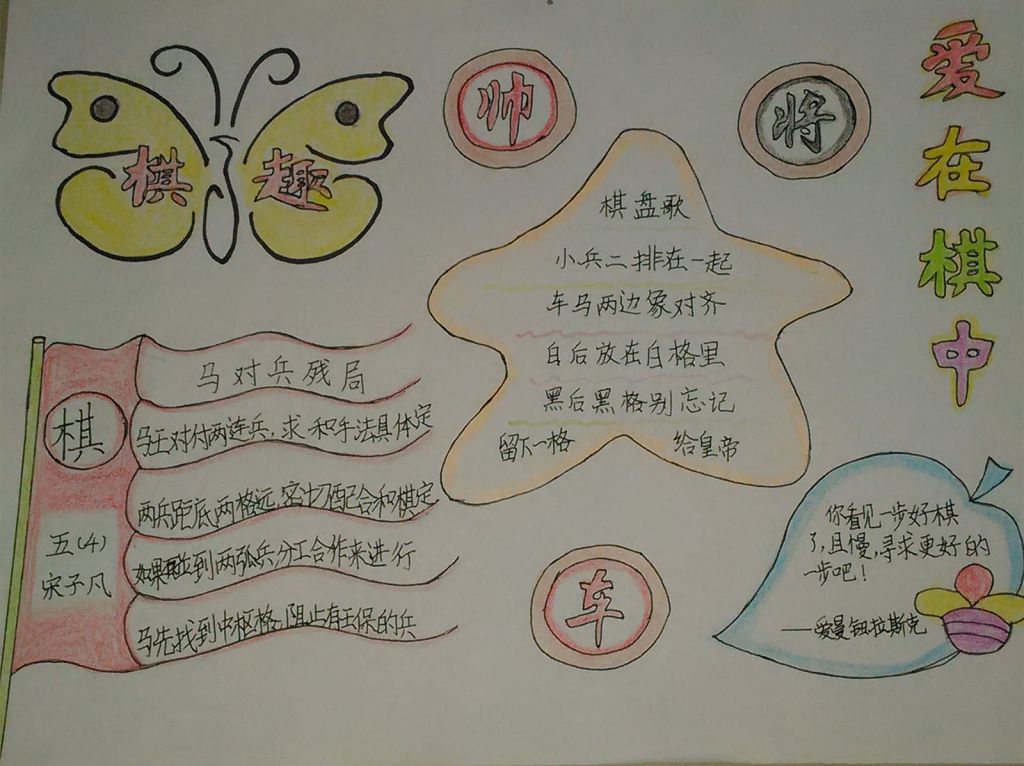 棋趣
帅
将
爱在棋中
棋盘歌
小兵二排在一起
车马两边象对齐
白后放在白格里
黑后黑格别忘记
留下一格 给皇帝
棋
五(4)
宋子凡
马对兵残局
马王对付两连兵,求和手法具体定
两兵距底两格远,密切配合和棋定
如果碰到两弧兵,分工合作来进行
马先找到中枢格,阻止有王保的兵
车
你看见一步好棋
了,且慢,寻求更好的
一步吧!
——爱曼钮拉斯克